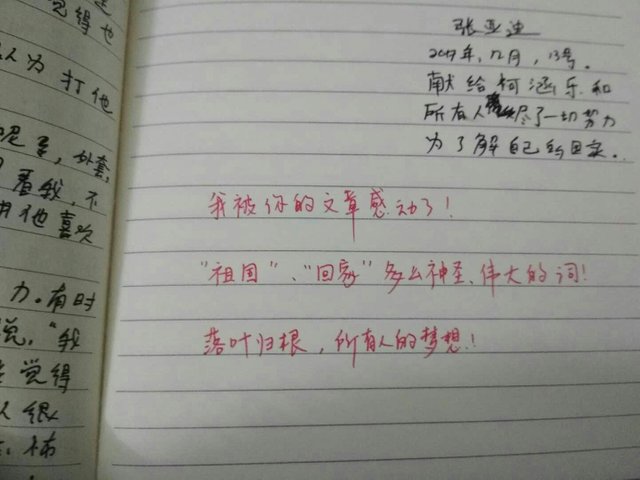 觉得也
认为打他
外套,
看我,不
用他喜欢
力。有时
说,“我
觉得
人很
张亚迪
2017年,12月,13号。
献给柯涵乐和
所有人尽了一切努力
为了解自己的国家。
我被你的文章感动了!
“祖国”、“回家”多么神圣、伟大的词!
落叶归根,所有人的梦想!